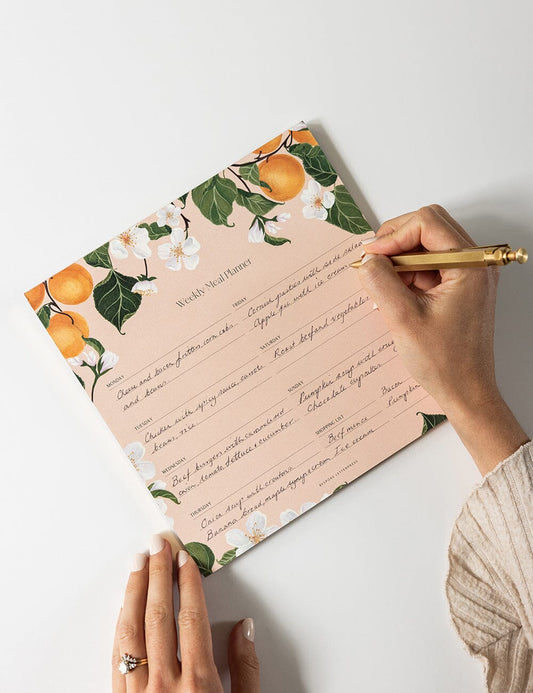 Weekly Meal Planner
MONDAY
Cheese and bacon fritters, corn cobs
and beans
TUESDAY
Chicken with spicy sauce, carrots
beans, rice
WEDNESDAY
Beef burgers with caramelised
onion, tomato, lettuce & cucumber
THURSDAY
Onion soup with croutons
Banana bread, maple syrup + cream
FRIDAY
Corned patties with side salad
Apple pie with ice cream
SATURDAY
Roast beef and vegetables
SUNDAY
Pumpkin soup with
Chocolate cupcakes
SHOPPING LIST
Beef mince
Ice cream
Bacon
Pumpkin
BESPOKE LETTERPRESS